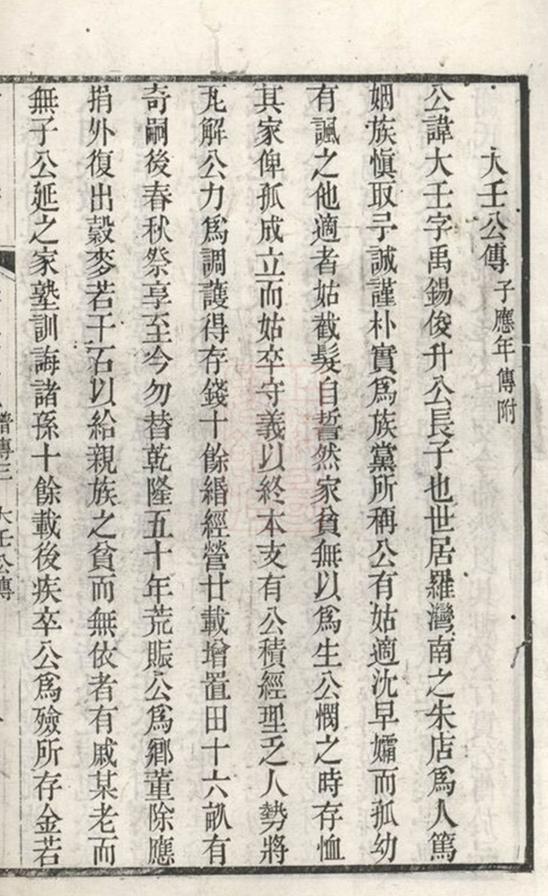 大壬公傳 子應年傳附
公諱大壬字禹錫俊升公長子也世居羅灣南之朱店爲人篤
姻族慎取予誠謹朴實爲族黨所稱公有姑適沈早孀而孤幼
有諷之他適者姑截髮自誓然家貧無以爲生公憫之時存恤
其家俾孤成立而姑卒守義以終本支有公積經理乏人勢將
瓦解公力爲調護得存錢十餘緡經營廿載增置田十六畝有
奇嗣後春秋祭享至今勿替乾隆五十年荒賑公爲鄉董除應
捐外復出穀麥若干石以給親族之貧而無依者有戚某老而
無子公延之家塾訓誨諸孫十餘載後疾卒公爲殮所存金若
譜傳三 大壬公傳